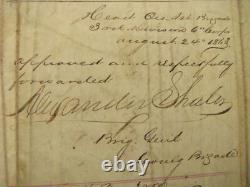 Head Qrs 1st Brigade
3rd Division 6th Corps
August 24th 1863
approved and respectfully
forwarded
Alexander Shaler
Brig. Genl
Comdg Brigade